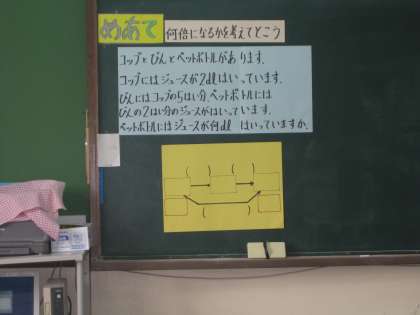 めあて 何倍になるかを考えてとこう
コップとびんとペットボトルがあります。
コップにはジュースが2dlはいっています。
びんにはコップの5はい分、ペットボトルには
びんの2はい分のジュースがはいっています。
ペットボトルにはジュースが何dl はいっていますか。
( ) ( )
( )